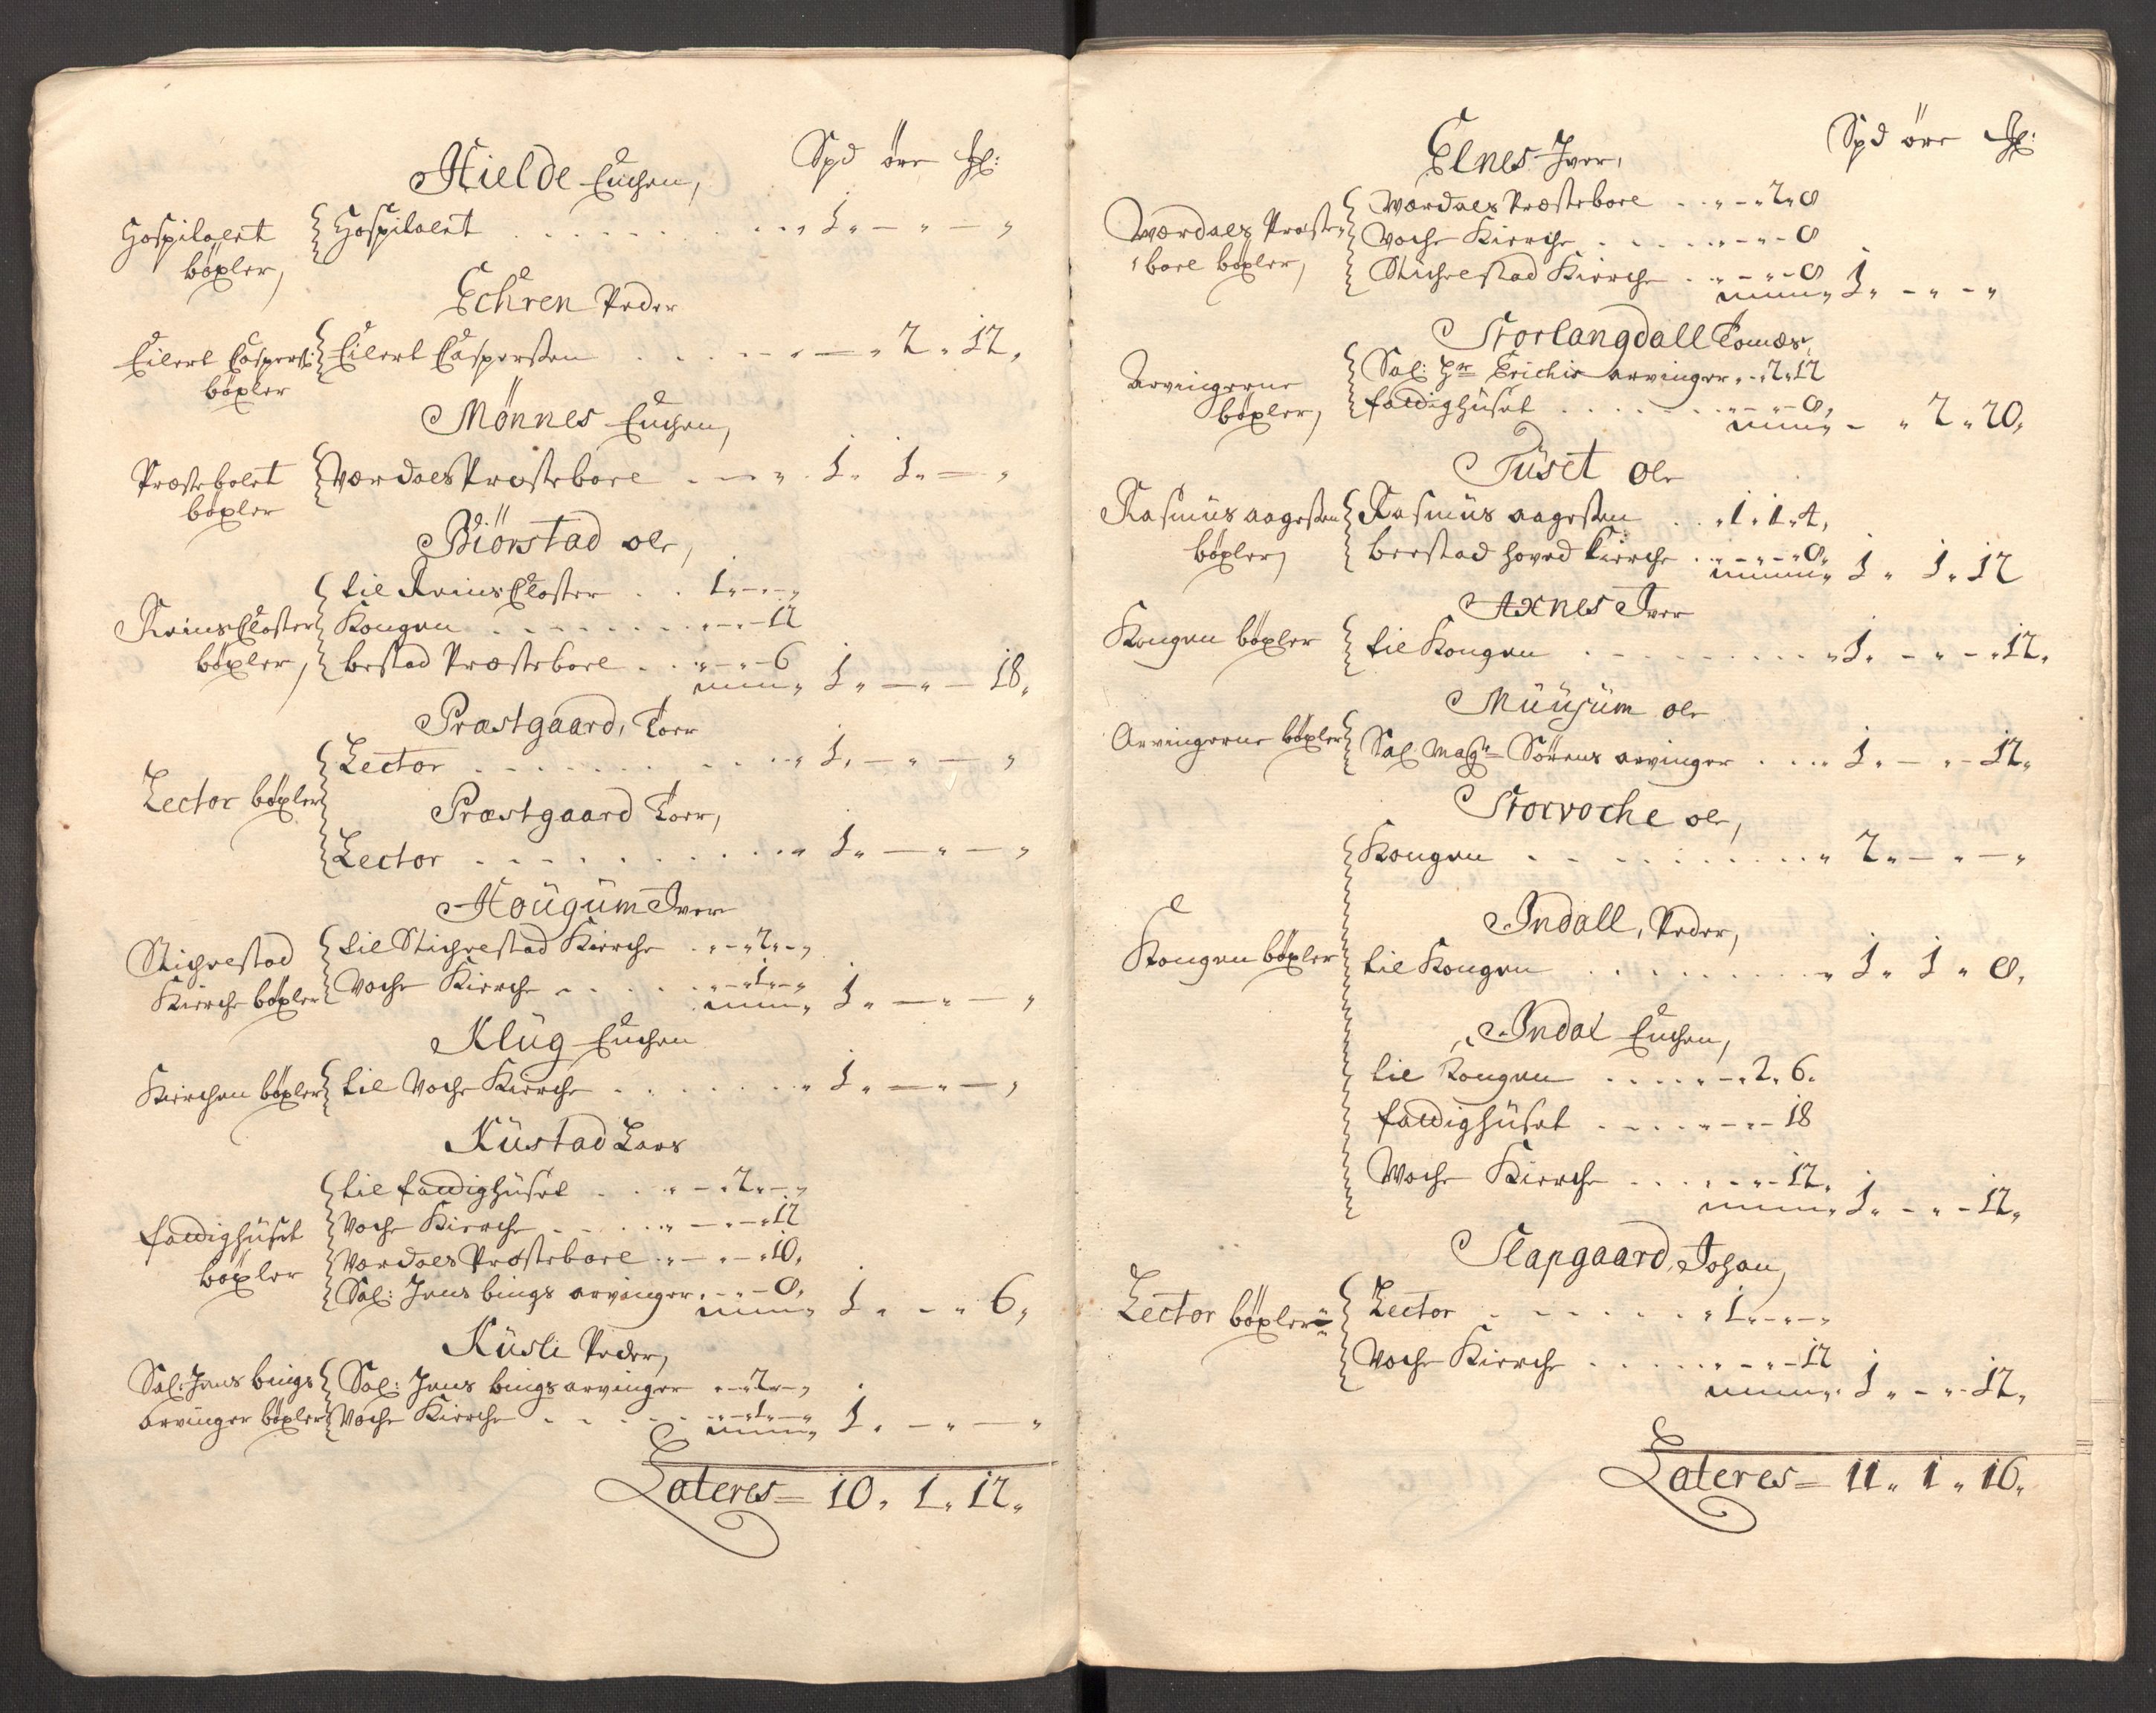 Spd öre ℳ:
Hielde Luchen,
Hospitalet
böxler,
Hospitalet . . . . . . . . . . . „ 1 „ — „ — „
Echren Peder
Eilert Caspers:
böxler
Eilert Caspersen . . . . . . - „ — „ 2 „ 12 „
Mönnes Luchen,
Præstebolet
böxler
Værdals Præsteboel . — „ 1 „ 1 „ — „
Biörstad ole,
Reins Closter
böxler,
til Reins Closter . . 1 „ - „ - „
Kongen . . . . . . . „ - „ - 12
bestad Præsteboel . . „ — „ — 6
„ 1 „ — „ — 18 „
Præstgaard, Torr
Lector böxler
Lector . . . . . . . . . . „ 1 „ — „ — „
Præstgaard Torr,
Lector . . . . . . . . . . „ 1 „ — „ — „
Hougum Iver
Stichelstad
Kierche böxler
til Stichelstad Kierche . „ - „ 2 „ - „
Voche Kierche . . . . . „ - „ 1 „ - „
„ 1 „ — „ — „
Klüg Luchen
Kierchen böxler
til Voche Kierche . . . . . . . „ 1 „ — „ — „
Küstad Lars
fattighuset
böxler
til fattighuset . . „ — „ 2 „ — „
Voche Kierche . . . . „ — „ — „ 12
Værdals Præsteboel . „ — „ — „ 10 „
Sal: Jens bings arvinger „ - „ - 8 „
„ 1 „ - „ 6 „
Küsli Peder,
Sal: Jens bings
arvinger böxler
Sal: Jens bings arvinger „ — „ 2 „ — „
Voche Kierche . . . . . „ — „ 1 „ — „
1 „ — „ — „
Lateres = 10 „ 1 „ 12 „
Spd öre ℳ:
Elnes Iver,
Værdals Præste-
boel böxler,
Værdals Præsteboel . . „ - „ 2 „ 8
Voche Kierche . . . . . „ - „ - 8
Stichelstad Kierche . „ — „ - 8
„ 1 „ - „ - „
Storlangdall Tomas,
Arvingerne
böxler,
Sal: Hr Erichs arvinger „ - „ 2 „ 12
fattighuset . . . . . . . „ - „ — 8 „
- „ 2 „ 20 „
Tuset ole
Rasmus aagesen
böxler,
Rasmus aagesen . . „ 1 „ 1 „ 4 „
beestad hoved kierche . „ — „ — 8 „
„ 1 „ 1 „ 12
Axnes Iver
Kongen böxler
til Kongen . . . . . . . . . „ 1 „ - „ - „ 12 „
Müüsüm ole
Arvingerne böxler
Sal: Magr Sörens arvinger . . . „ 1 „ — „ - 12 „
Storvoche ole,
Kongen . . . . . . . . . . „ 2 „ — „ — „
Indall, Peder,
Kongen böxler
til Kongen . . . . . . . . . „ 1 „ 1 „ 8 „
Indal Luchen,
til Kongen . . . . . „ - „ 2 „ 6 „
fattighuset . . . . „ - „ - 18
Woche Kierche . . . „ - „ - 12 „
„ 1 „ - „ - 12 „
Slapgaard, Johan,
Lector böxler
Lector . . . . . . . „ 1 „ - „ - „
Voche Kierche . . . . . „ - „ - 12
„ 1 „ - „ - 12 „
Lateres = 11 „ 1 „ 16 „